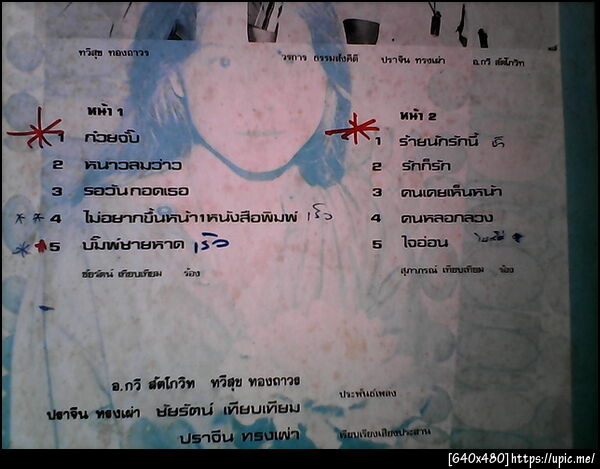 ทวีสุข ทองถาวร วรการ ธรรมสังคีตี ปราจีน ทรงเผ่า อ.กวี สัตโกวิท
หน้า 1
1 ก๋วยจั๊บ
2 หนาวลมว่าว
3 รอวันกอดเธอ
4 ไม่อยากขึ้นหน้า1หนังสือพิมพ์ เร็ว
5 บั๊มพ์ชายหาด เร็ว
ชัยรัตน์ เทียบเทียม ร้อง
หน้า 2
1 ร้ายนักรักนี้
2 รักก็รัก
3 คนเคยเห็นหน้า
4 คนหลอกลวง
5 ใจอ่อน
สุภาภรณ์ เทียบเทียม ร้อง
อ.กวี สัตโกวิท ทวีสุข ทองถาวร
ปราจีน ทรงเผ่า ชัยรัตน์ เทียบเทียม ประพันธ์เพลง
ปราจีน ทรงเผ่า เรียบเรียงเสียงประสาน
[640x480]https://upic.me/